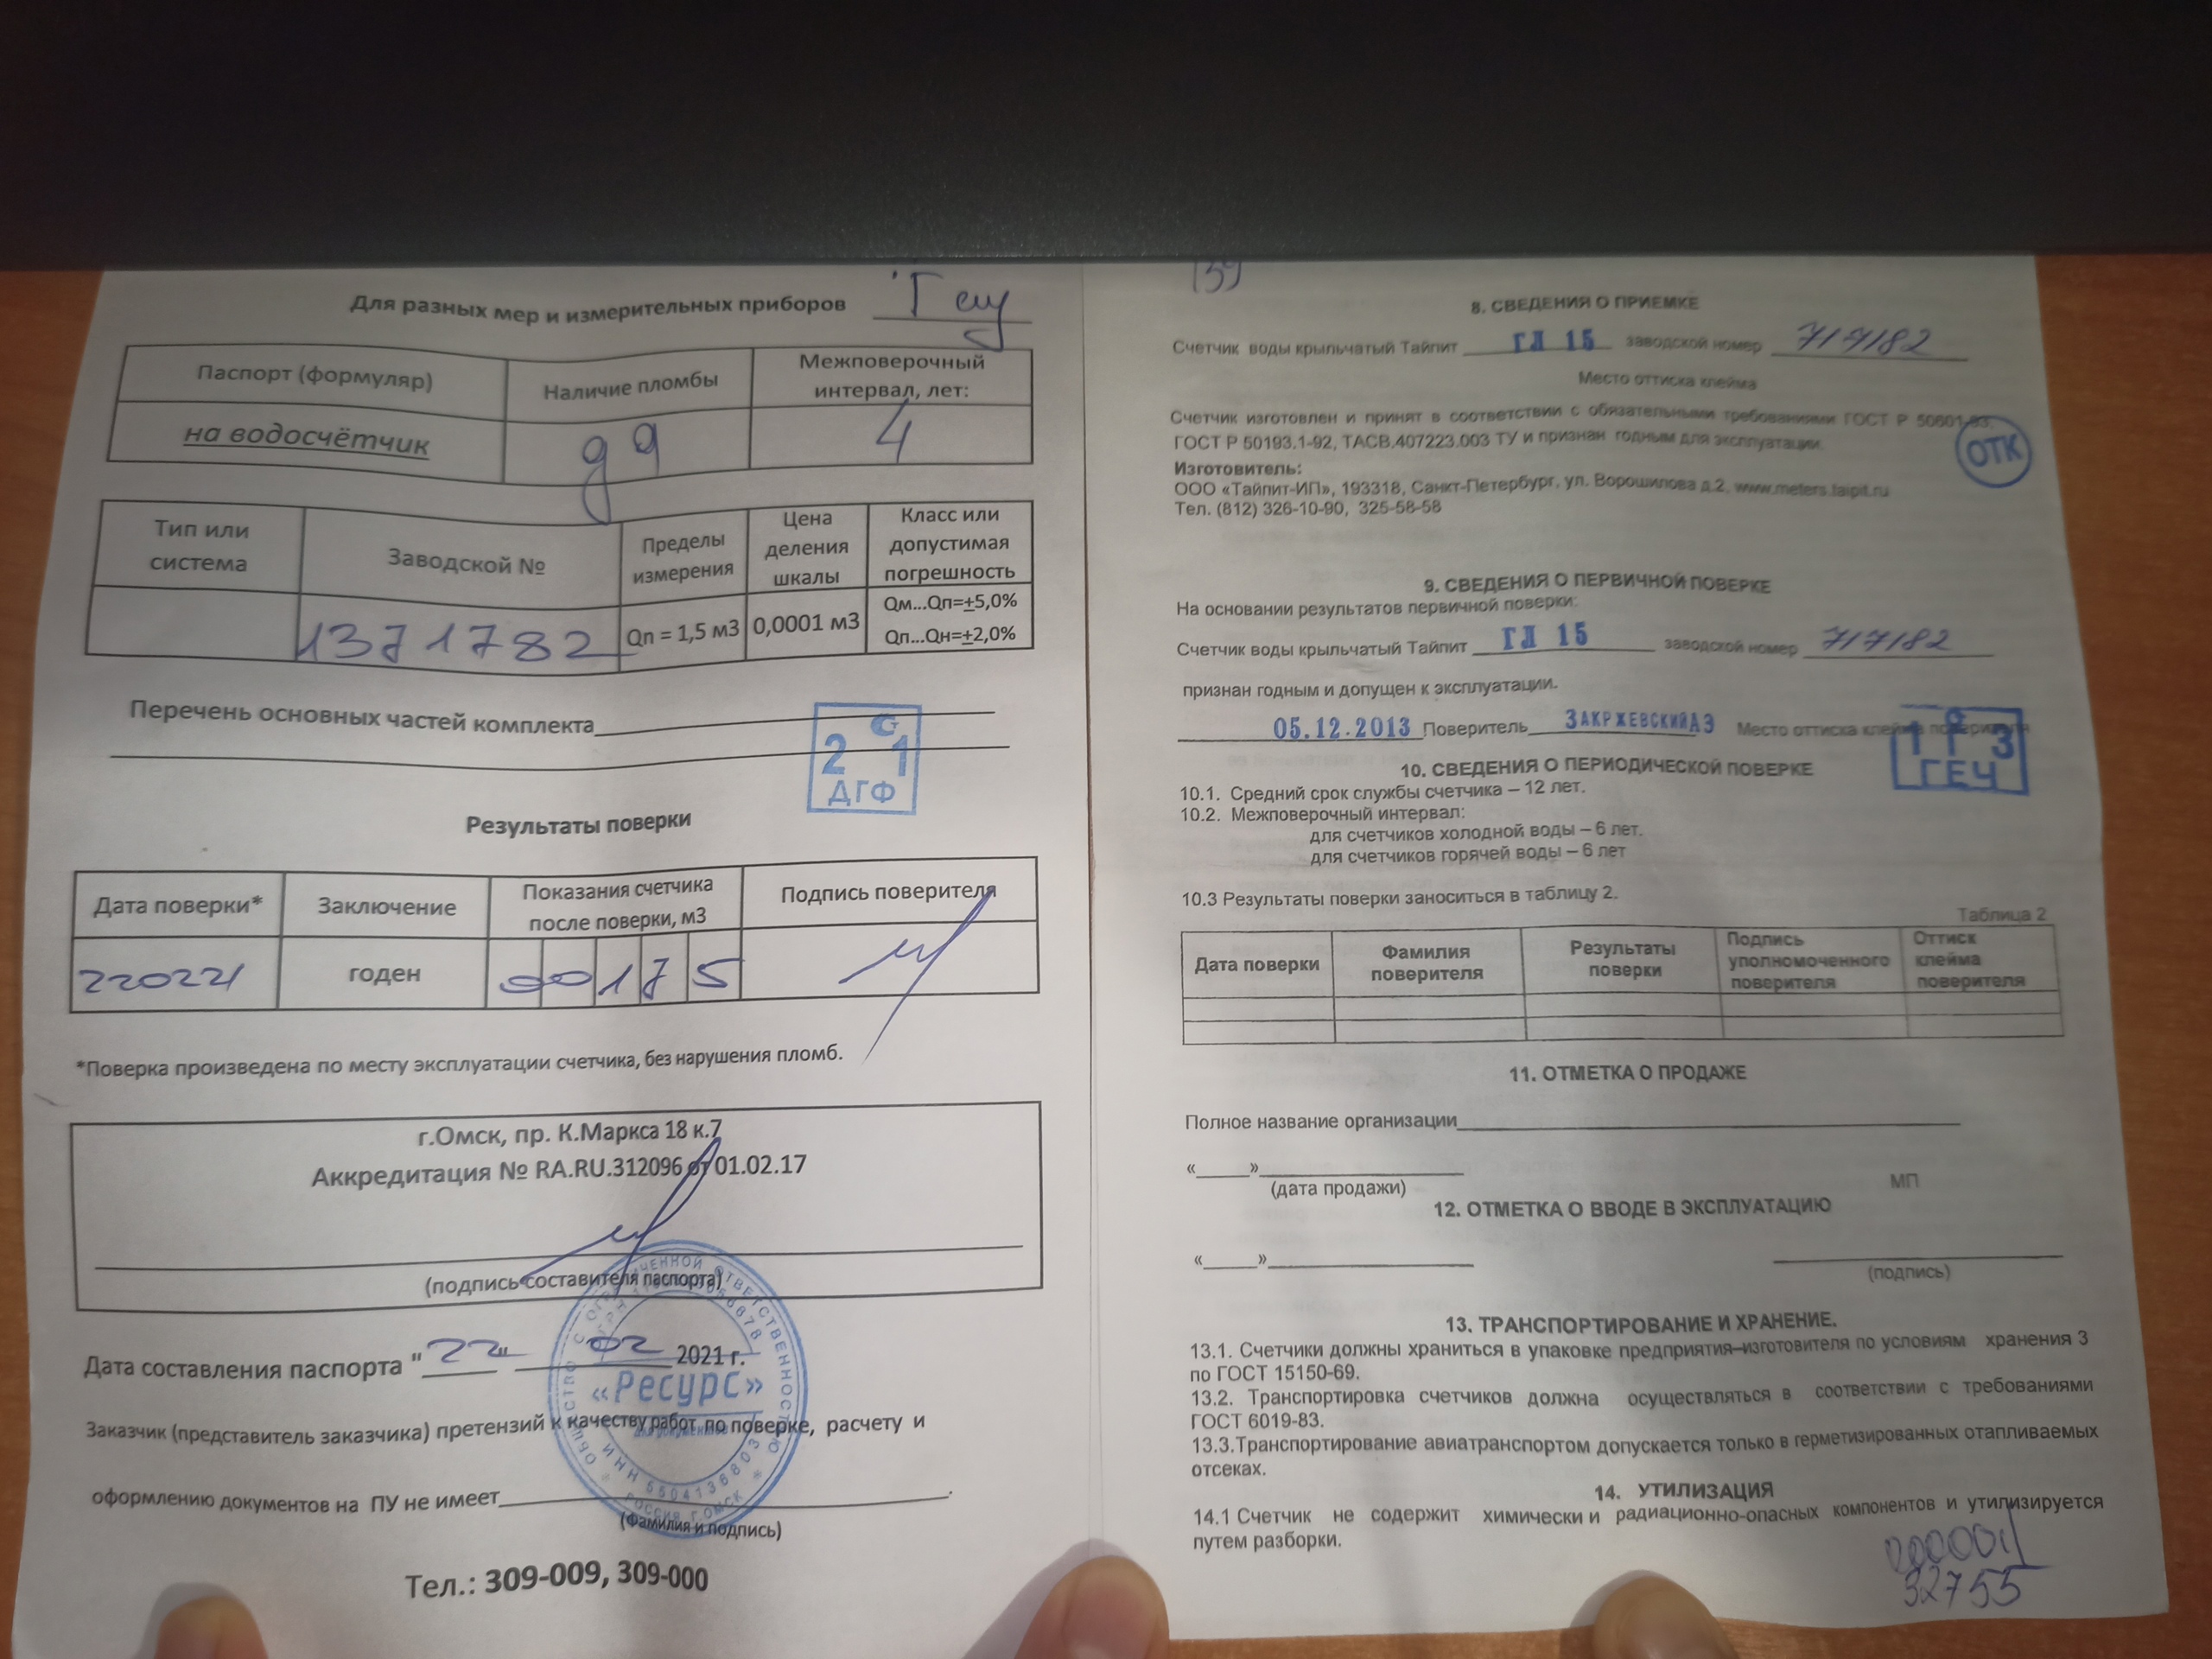 Для разных мер и измерительных приборов
Паспорт (формуляр) Наличие пломбы Межповерочный интервал, лет:
на водосчётчик 4
Тип или система Заводской № Пределы измерения Цена деления шкалы Класс или допустимая погрешность
1371782 Qn = 1,5 м3 0,0001 м3 Qм...Qп=±5,0%
Qп...Qн=±2,0%
Перечень основных частей комплекта
2 1
ДГФ
Результаты поверки
Дата поверки* Заключение Показания счетчика после поверки, м3 Подпись поверителя
220221 годен 00175
*Поверка произведена по месту эксплуатации счетчика, без нарушения пломб.
г.Омск, пр. К.Маркса 18 к.7
Аккредитация № RA.RU.312096 от 01.02.17
(подпись составителя паспорта)
Дата составления паспорта "22" 02 2021 г.
«Ресурс»
Заказчик (представитель заказчика) претензий к качеству работ по поверке, расчету и
оформлению документов на ПУ не имеет
ИНН 5504136803
РОССИЯ Г.ОМСК
(Фамилия и подпись)
Тел.: 309-009, 309-000
139
8. СВЕДЕНИЯ О ПРИЕМКЕ
Счетчик воды крыльчатый Тайпит ГЛ 15 заводской номер 717182
Место оттиска клейма
Счетчик изготовлен и принят в соответствии с обязательными требованиями ГОСТ Р 50601-93,
ГОСТ Р 50193.1-92, ТАСВ.407223.003 ТУ и признан годным для эксплуатации.
ОТК
Изготовитель:
ООО «Тайпит-ИП», 193318, Санкт-Петербург, ул. Ворошилова д.2, www.meters.taipit.ru
Тел. (812) 326-10-90, 325-58-58
9. СВЕДЕНИЯ О ПЕРВИЧНОЙ ПОВЕРКЕ
На основании результатов первичной поверки:
Счетчик воды крыльчатый Тайпит ГЛ 15 заводской номер 717182
признан годным и допущен к эксплуатации.
05.12.2013 Поверитель ЗАКРЖЕВСКИЙ АЭ Место оттиска клейма поверителя
1 Г 3
ГЕЧ
10. СВЕДЕНИЯ О ПЕРИОДИЧЕСКОЙ ПОВЕРКЕ
10.1. Средний срок службы счетчика – 12 лет.
10.2. Межповерочный интервал:
для счетчиков холодной воды – 6 лет.
для счетчиков горячей воды – 6 лет
10.3 Результаты поверки заноситься в таблицу 2.
Таблица 2
Дата поверки Фамилия поверителя Результаты поверки Подпись уполномоченного поверителя Оттиск клейма поверителя
11. ОТМЕТКА О ПРОДАЖЕ
Полное название организации
«_____»
(дата продажи) МП
12. ОТМЕТКА О ВВОДЕ В ЭКСПЛУАТАЦИЮ
«_____»
(подпись)
13. ТРАНСПОРТИРОВАНИЕ И ХРАНЕНИЕ.
13.1. Счетчики должны храниться в упаковке предприятия–изготовителя по условиям хранения 3
по ГОСТ 15150-69.
13.2. Транспортировка счетчиков должна осуществляться в соответствии с требованиями
ГОСТ 6019-83.
13.3.Транспортирование авиатранспортом допускается только в герметизированных отапливаемых
отсеках.
14. УТИЛИЗАЦИЯ
14.1 Счетчик не содержит химически и радиационно-опасных компонентов и утилизируется
путем разборки.
32755